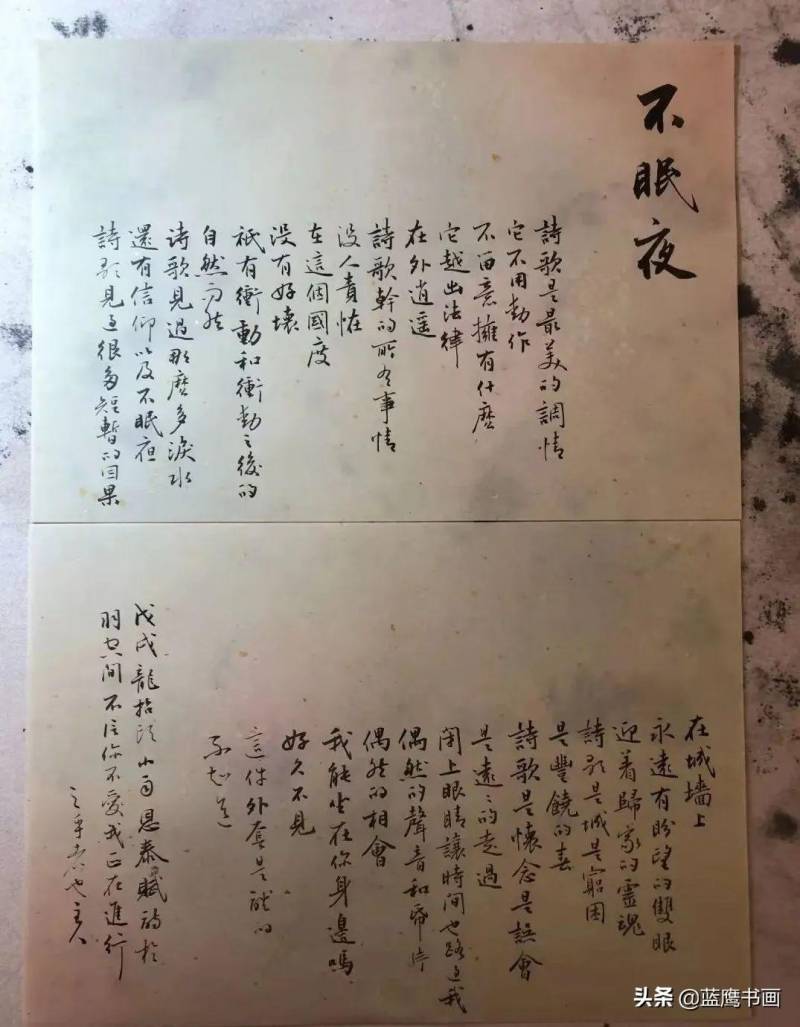 不眠夜
詩歌是最美的調情
它不用動作
不留意擁有什麽
它越出法律
在外逍遥
詩歌幹的所有事情
没人責怪
在這個國度
没有好壞
祇有衝動和衝動之後的
自然而然
诗歌見過那麽多淚水
還有信仰以及不眠夜
詩歌見過很多短暫的因果
在城墻上
永遠有盼望的雙眼
迎着歸家的靈魂
詩歌是城是窮困
是豐饒的春
詩歌是懷念是誤會
是遠遠的走過
閉上眼睛讓時間也路過我
偶然的聲音和
偶然的相會
我能坐在你身邊嗎
好久不見
這件外套是
不知道
戊戌龍抬頭小雨恩泰賦詩於
羽 間不信你不愛我正在進行
主人
头条 @蓝鹰书画